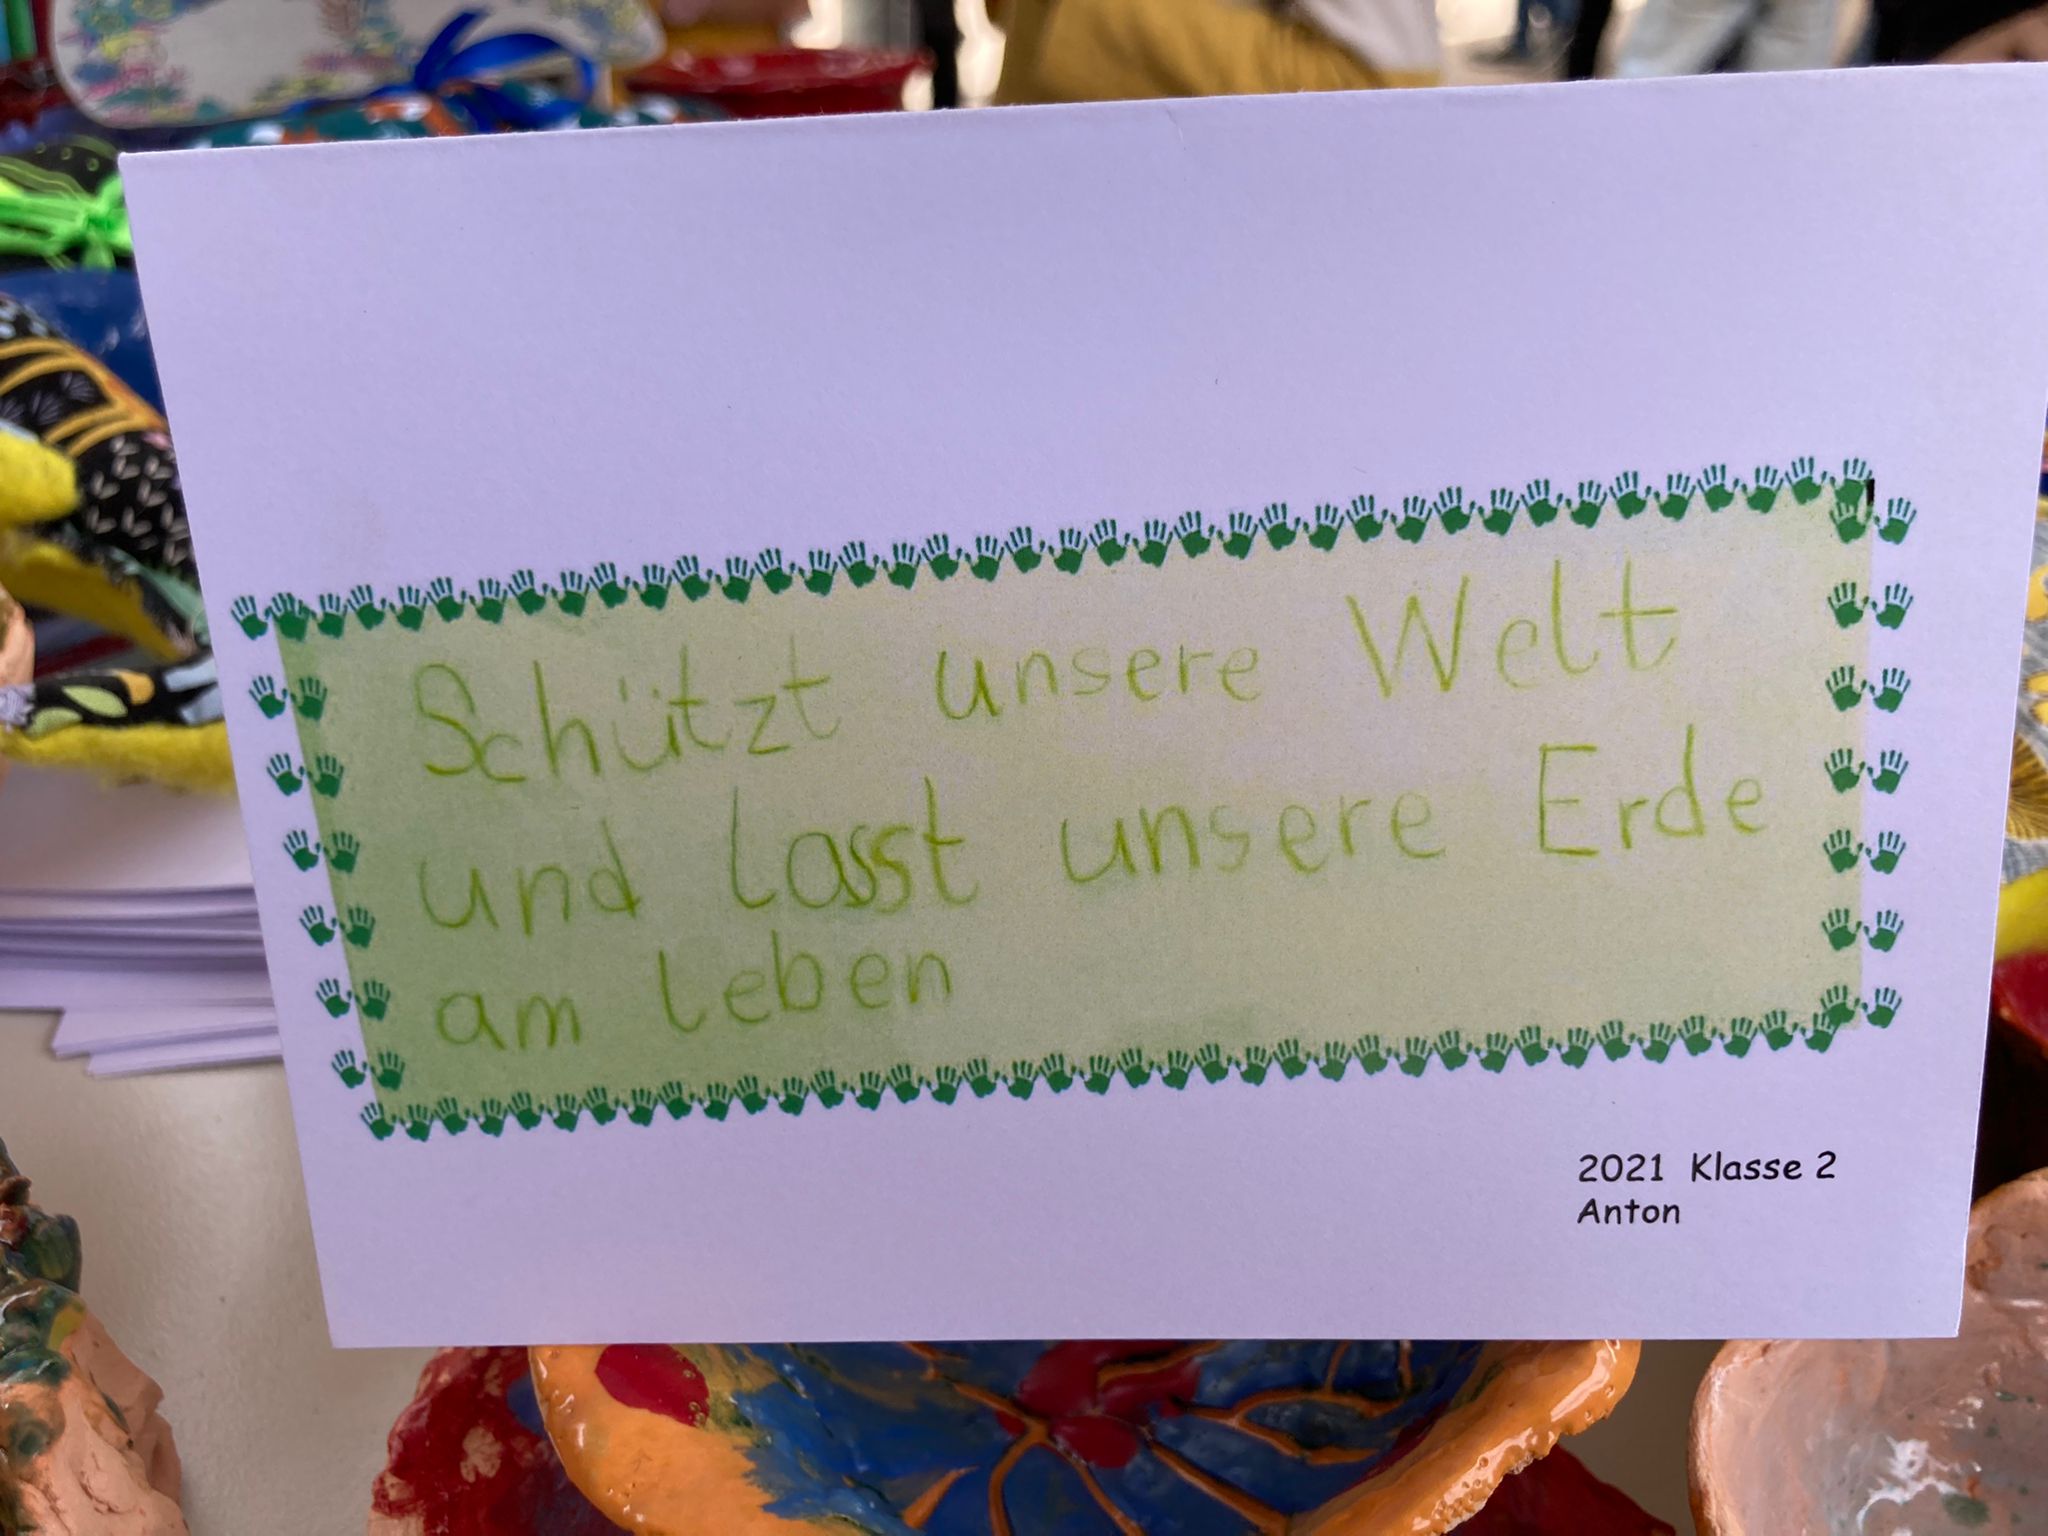 Schützt unsere Welt
und lasst unsere Erde
am leben
2021 Klasse 2
Anton